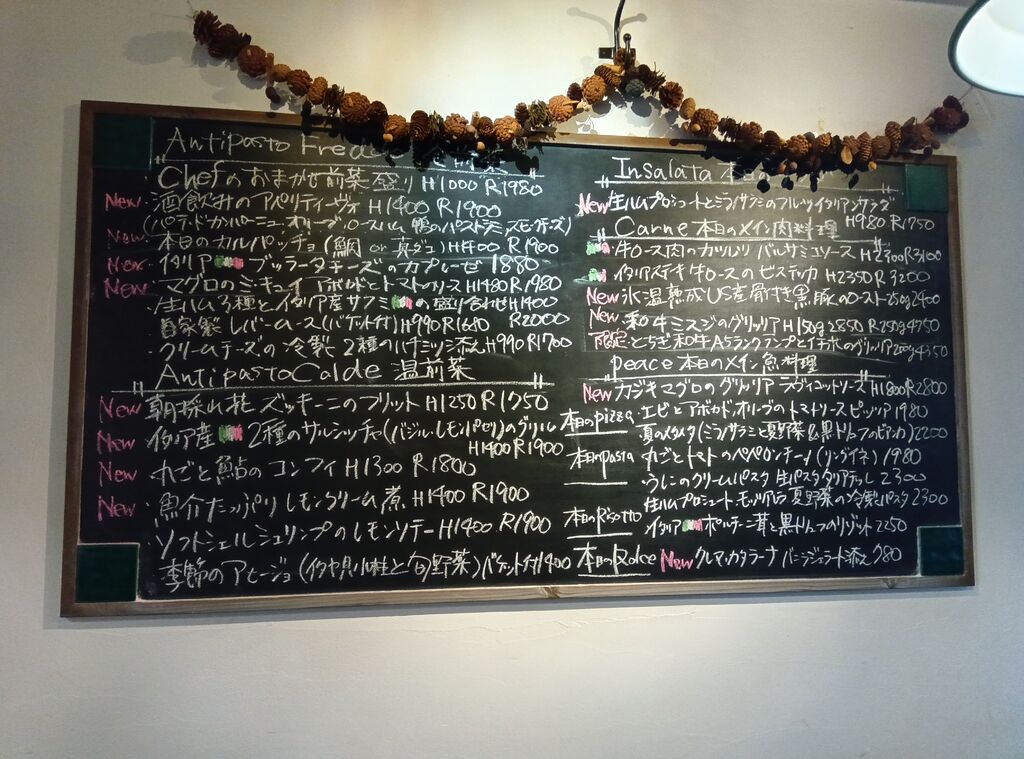 Antipasto Fred
Chefのおまかせ前菜盛り H1000 R1980
New 酒飲みのアペリティーヴォ H1400 R1900
(パテドカンパーニュ オリーブ ロースハム 鴨のパストラミ スモークチーズ)
New 本日のカルパッチョ (鯛 or 真ダコ) H1400 R1900
New イタリア ブッラータチーズのカプレーゼ 1880
New マグロのミキュイ アボカドとトマトのソース H1480 R1980
生ハム3種とイタリア産サラミの盛り合わせ H1400 R2000
自家製レバームース(バゲット付) H990 R1610
クリームチーズの冷製 2種のハチミツ添え H990 R1700
Antipasto Calde 温前菜
New 朝採れ花ズッキーニのフリット H1250 R1750
New イタリア産 2種のサルシッチャ(バジル・レモンパセリ)のグリル H1400 R1900
New 丸ごと鮎のコンフィ H1300 R1800
New 魚介たっぷりレモンクリーム煮 H1400 R1900
ソフトシェルシュリンプのレモンソテー H1400 R1900
季節のアヒージョ (イタヤ貝小柱と旬野菜) バケット付 1400
Insalata 本日の
New 生ハムプロシュートとミラノサラミのフルーツイタリアンサラダ H980 R1750
Carne 本日のメイン肉料理
牛ロース肉のカツレツ バルサミコソース H2700 R3100
イタリアステーキ 牛ロースのビステッカ H2350 R3200
New 氷温熟成US産骨付き黒豚のロースト 250g 2400
New 和牛ミスジのグリッリア H150g 2850 R250g 4750
限定 とちぎ和牛A5ランクランプとイチボのグリッリア 200g 4350
peace 本日のメイン魚料理
New カジキマグロのグリッリア ラヴィゴットソース H1800 R2800
本日のpizza エビとアボカド・オリーブのトマトソースピッツァ 1980
夏のメタメタ(ミラノサラミと夏野菜&黒トリュフのビアンカ) 2200
本日のpasta 丸ごとトマトのペペロンチーノ (リングイネ) 1980
うにのクリームパスタ 生パスタタリアテッレ 2300
生ハムプロシュート・モッツァレラ 夏野菜の冷製パスタ 2300
本日のRisotto イタリア ポルチーニ茸と黒トリュフのリゾット 2250
本日のDolce New クレマカタラーナ バニラジェラート添え 780